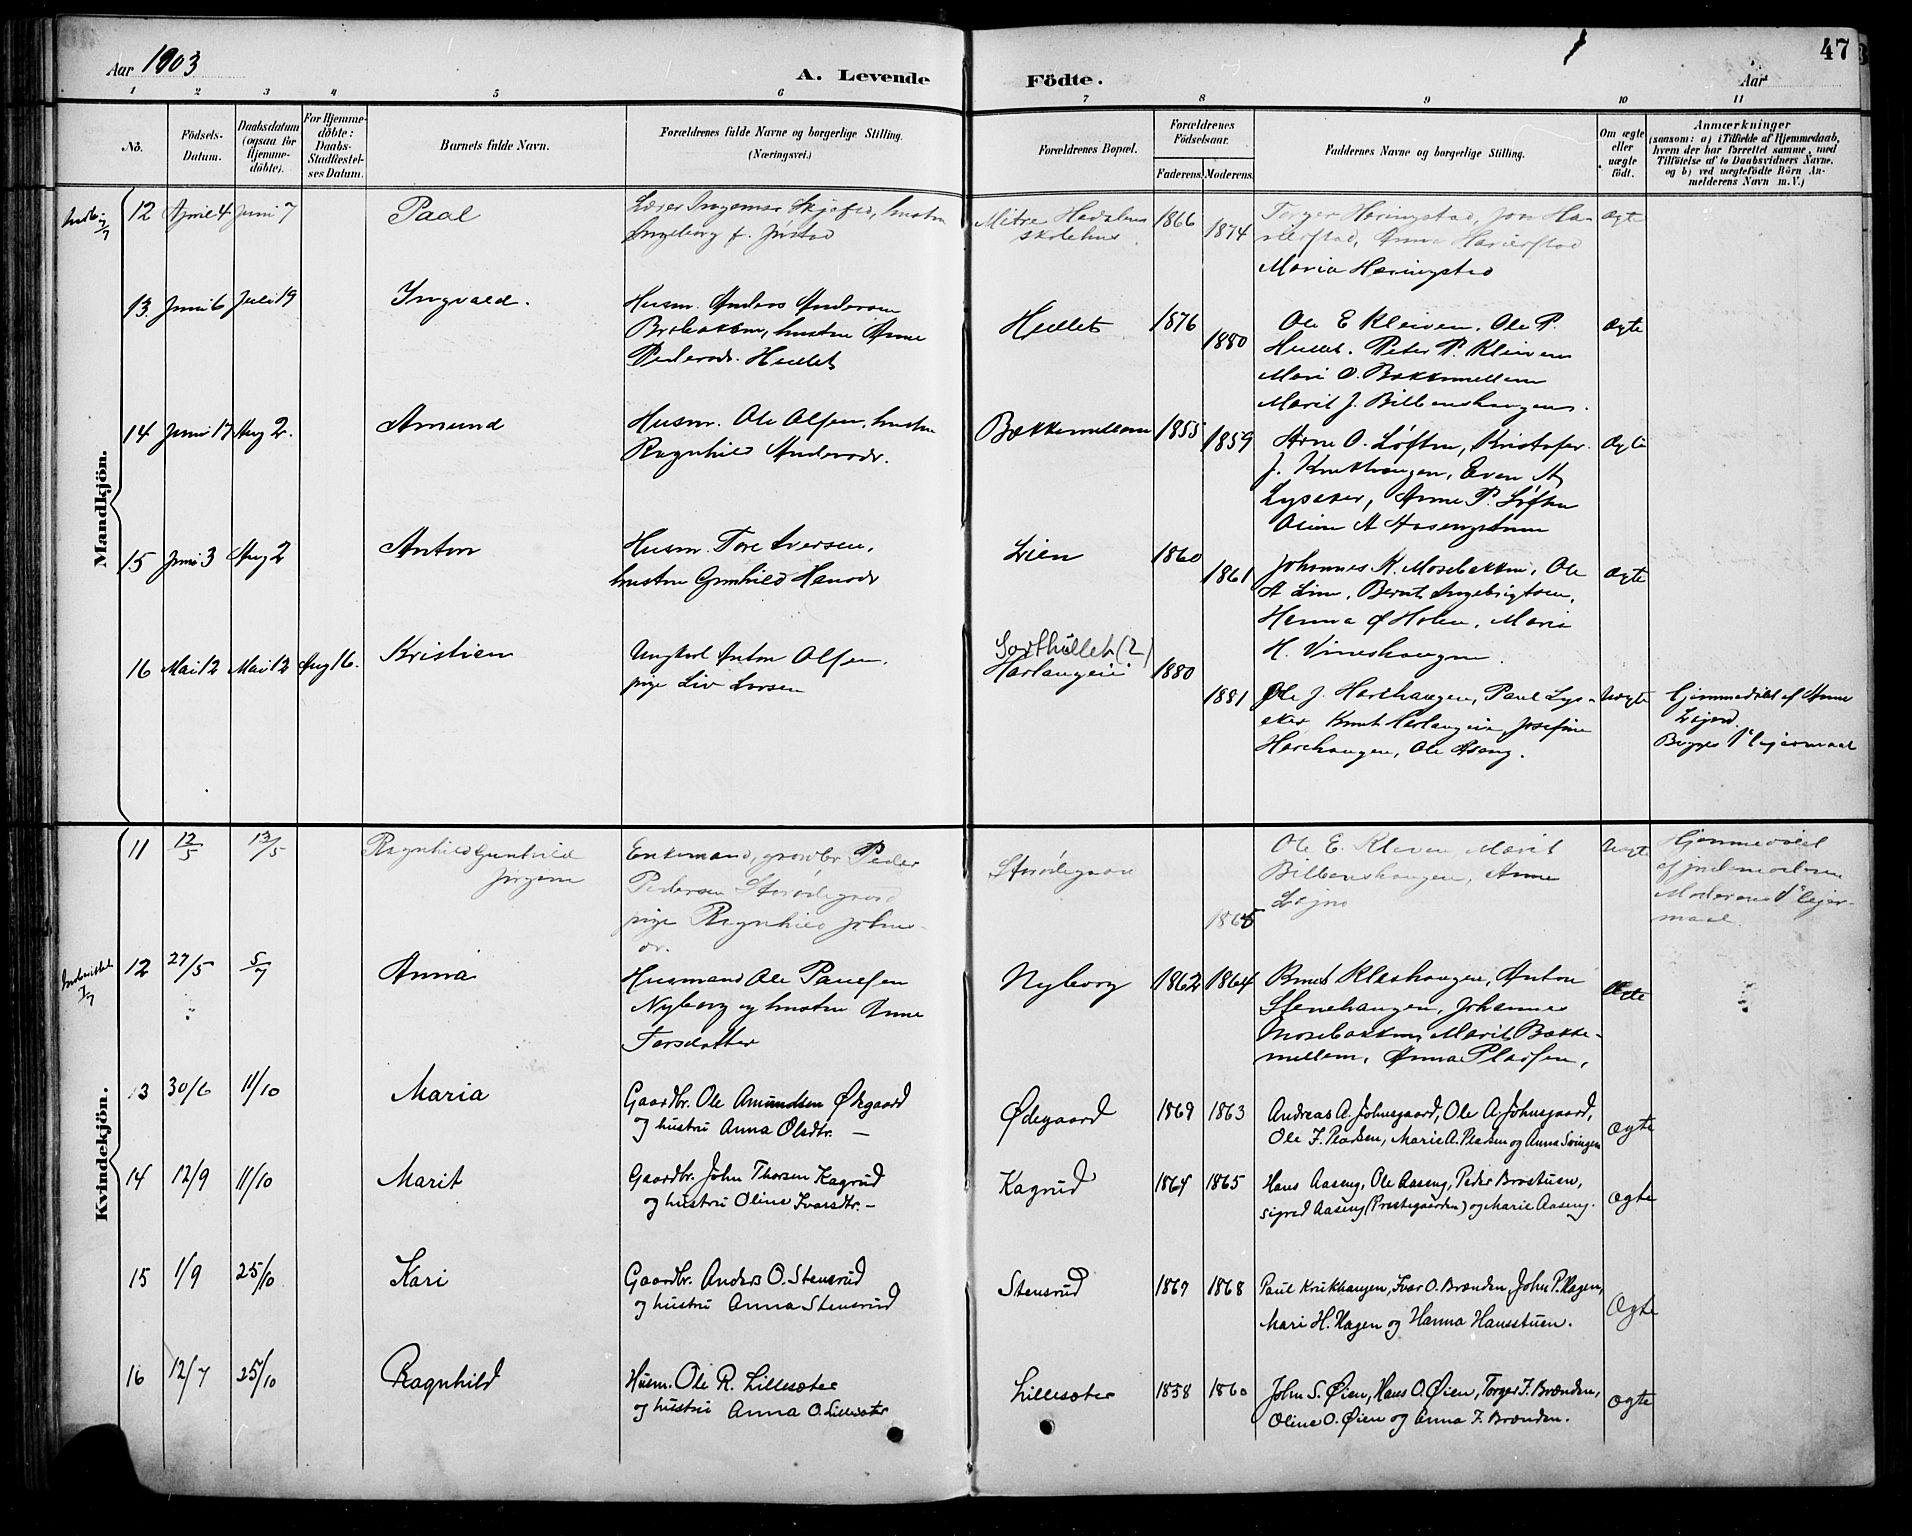 Aar 1903
A. Levende Födte.
Aar
47
1 2 3 4 5 6 7 8 9 10 11
No.
Födsels-Datum.
Daabsdatum (ogsaa for Hjemme-döbte).
For Hjemme-döbte: Daabs-Stadfæstel-ses Datum.
Barnets fulde Navn.
Forældrenes fulde Navne og borgerlige Stilling. (Næringsvei.)
Forældrenes Bopæl.
Forældrenes Födselsaar.
Faderens. Moderens.
Faddernes Navne og borgerlige Stilling.
Om ægte eller uægte födt.
Anmærkninger
(saasom: a) i Tilfælde af Hjemmedaab, hvem der har forrettet samme, med Tilföielse af to Daabsvidners Navne, og b) ved uægtefödte Börn An-melderens Navn m. V.)
Mandkjön.
12 April 4 Juni 7 Paal
Ingeborg f.
skolehus
1866 1874
Maria Haringstad
Ægte
13. Juni 6 Juli 19 Ingvald.
Husm. Anders Andersen
Brobakken, hustru Anne
Pedersdr. Hullet
Hullet
1876 1880
Ole E Kleiven, Ole P.
Hullet. Peter P. Kleiven
Mari O. Bækkemellem
Marit J. Bilbenshaugen.
Ægte
14 Juni 17 Aug 2. Amund
Husm. Ole Olsen, hustru
Ragnhild Andersdr.
Bækkemellem
1855 1859
Arne O. Løften, Kristofer
J. Krukhaugen, Even A
Lyseker, Anne P. Løften
Ægte
15 Juni 3 Aug 2 Anton
Husm. Tore Iversen,
hustru Gunhild Hansdr
Lien
1860 1861
Johannes K. Mosebakken, Ole
A Lien, Bernt Ingebrigtsen,
Hanna Holen, Marie
H. Vineshaugen.
Ægte
16 Mai 12 Mai 12 Aug 16. Kristian
Ungkarl Anton Olsen,
pige Liv Larsen
Sorthullet (2)
Harlangeie
1880 1881
Ole J. Harehaugen, Paul Lys-
eker, Knut Harlangeie, Josefine
Harehaugen, Ole Aseng.
Uægte
Hjemmedøbt af Anne
Begges 1ste leiermaal
Kvindekjön.
11 12/5 13/5
Ragnhild Gunhild
Enkemand, gaardbr. Peder
Pedersen Storødegaard
pige Ragnhild Johns-
dr.
Storødegaard
1865
Ole E. Kleven Marit
Bilbenshaugen, Anne
Uægte
Hjemmedøbt
af jordemoderen
Moderens 1ste leier-
maal
12 27/5 5/7 Anna
Husmand Ole Paulsen
Nyborg og hustru Anne
Torsdatter
Nyborg
1862 1864
Knut Kleshaugen, Anton
Stenehaugen, Johannes
Mosebakken, Marit Bække-
mellem, Anna Pladsen,
Ægte
13 30/6 11/10 Maria
Gaardbr. Ole Amundsen Ødegaard
og hustru Anna Olsdtr. —
Ødegaard
1869 1863
Andreas A. Johnsgaard, Ole A. Johnsgaard,
Ole J. Pladsen, Marie A. Pladsen og Anna Svingen
Ægte
14 12/9 11/10 Marit
Gaardbr. John Thorsen Kagrud
og hustru Oline Ivarsdtr. —
Kagrud
1864 1865
Hans Aaseng, Ole Aaseng, Peder Brostuen,
Sigrid Aaseng (Prestegaarden) og Marie Aaseng.
Ægte
15 1/9 25/10 Kari
Gaardbr. Anders O. Stensrud
og hustru Anna Stensrud
Stensrud
1869 1868
Paul Krukhaugen, Ivar O. Brænden, John P. Hagen,
Mari H. Hagen og Hanna Hansstuen.
Ægte
16 12/7 25/10 Ragnhild
Husm. Ole R. Lillesæter
og hustru Anna O. Lillesæter
Lillesæter
1858 1860
John S. Øien, Hans O. Øien, Torger J. Brænden,
Oline O. Øien og Anna J. Brænden.
Ægte